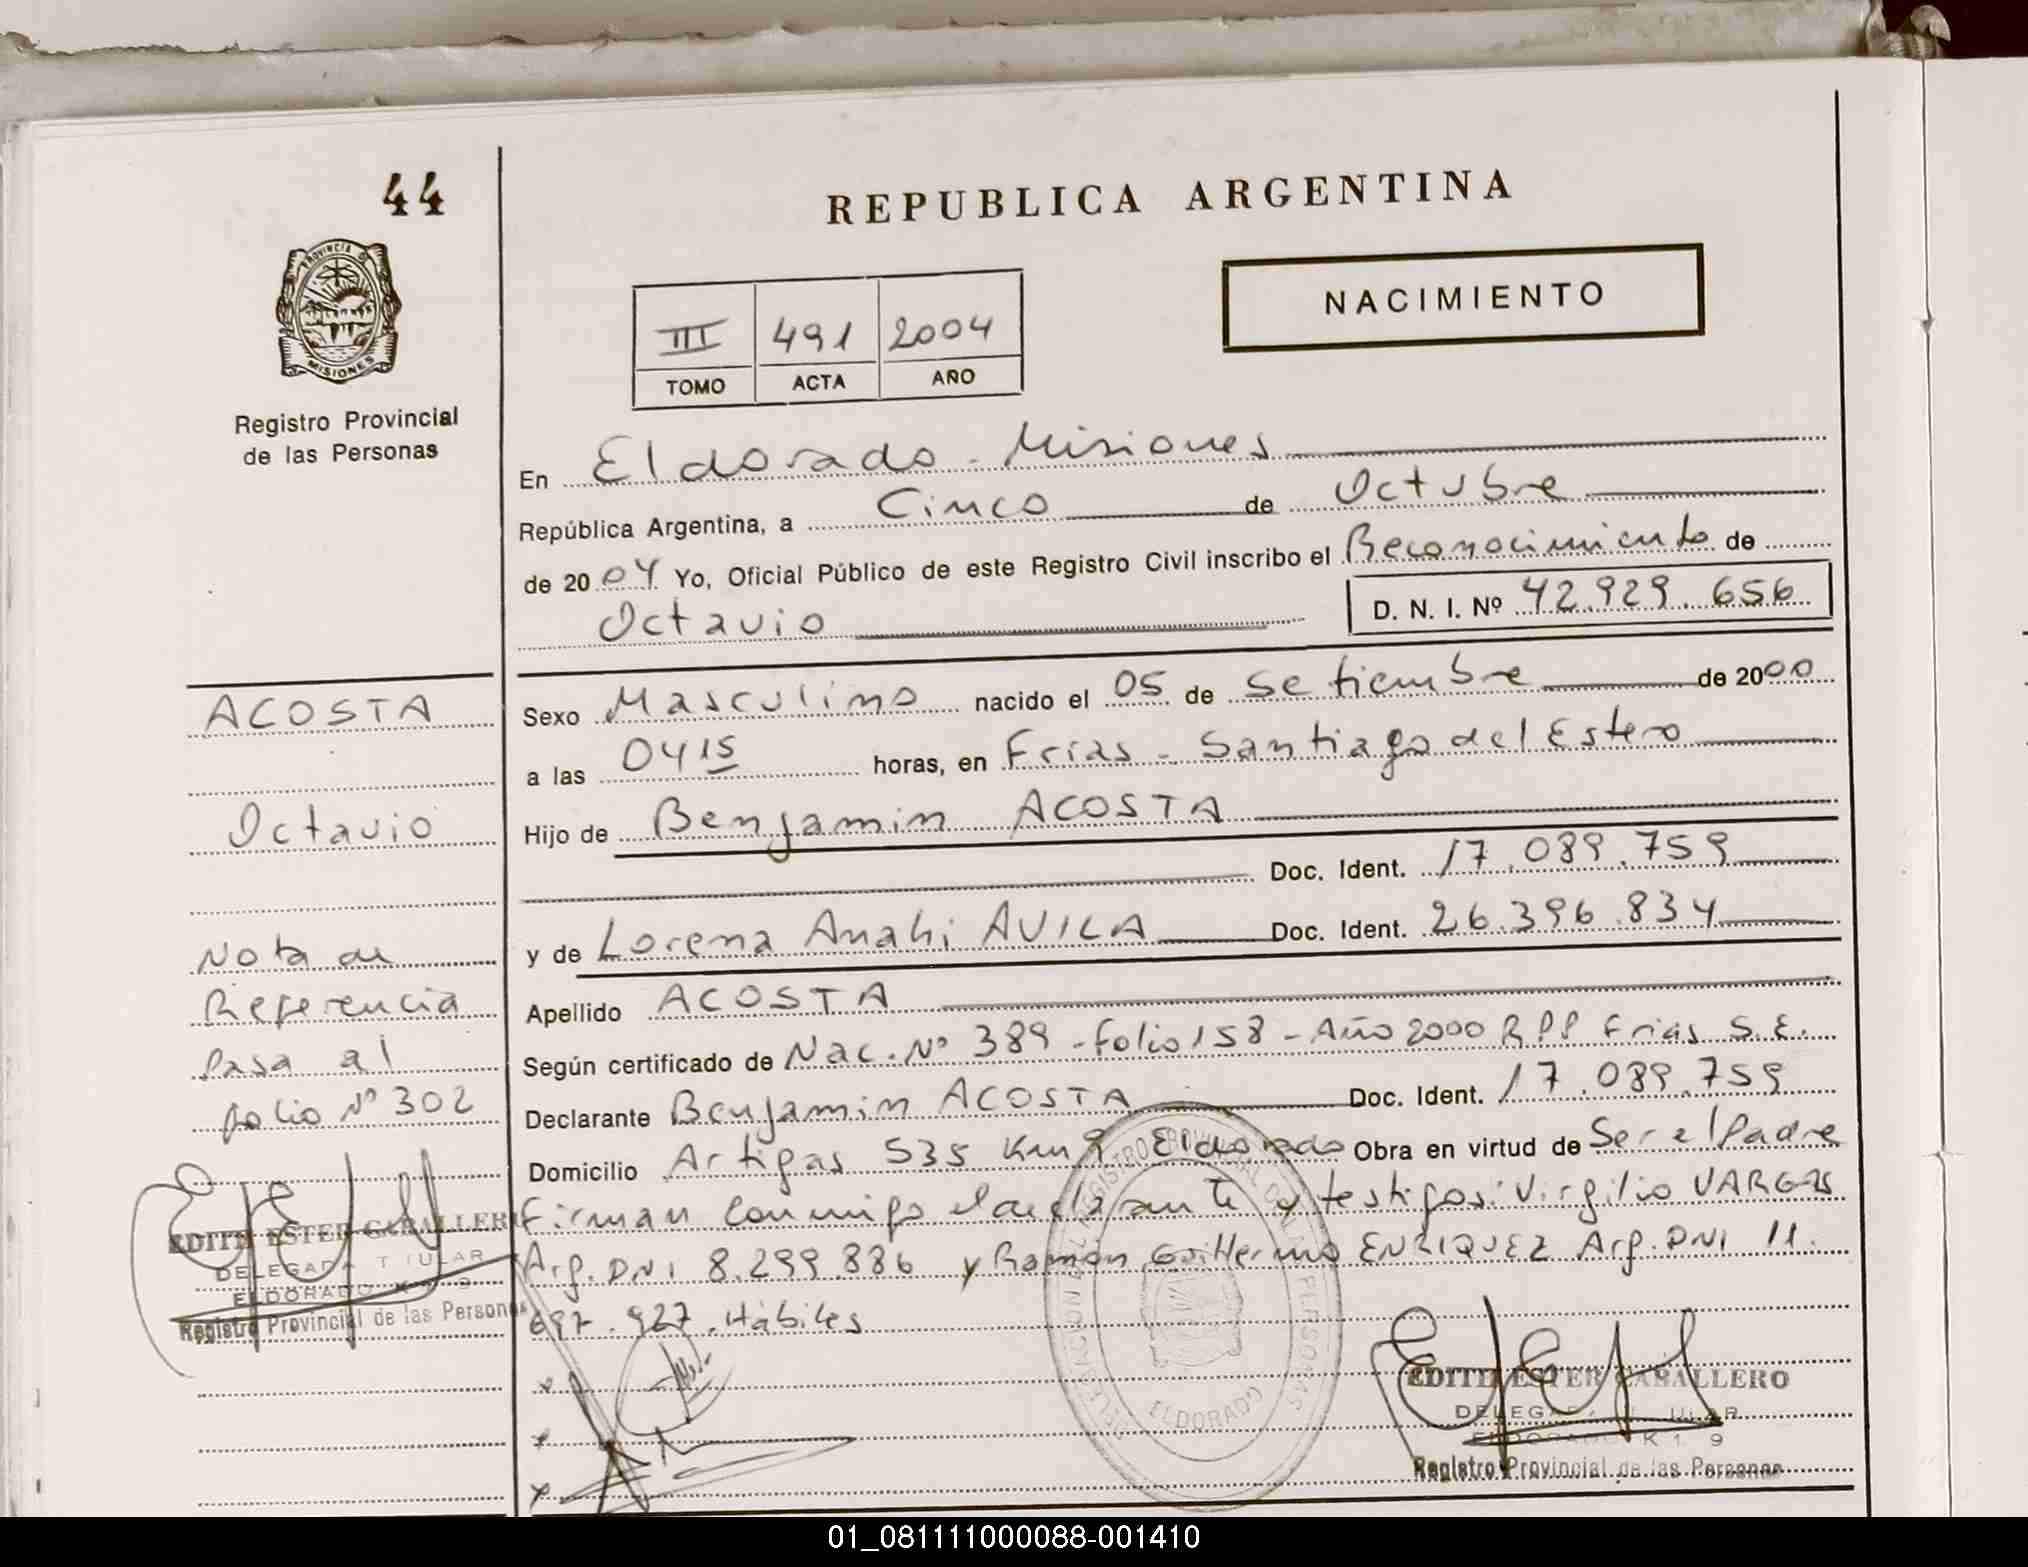 44
PROVINCIA DE
MISIONES
Registro Provincial
de las Personas
REPUBLICA ARGENTINA
NACIMIENTO
III 491 2004
TOMO ACTA AÑO
En Eldorado - Misiones
República Argentina, a Cinco de Octubre
de 2004 Yo, Oficial Público de este Registro Civil inscribo el Reconocimiento de
Octavio D. N. I. Nº 42.929.656
Sexo Masculino nacido el 05 de Setiembre de 2000
a las 0415 horas, en Frías - Santiago del Estero
Hijo de Benjamin ACOSTA
Doc. Ident. 17.089.759
y de Lorena Anahi AVILA Doc. Ident. 26.396.834
Apellido ACOSTA
Según certificado de Nac. Nº 389 - folio 158 - Año 2000 RPP Frias S.E.
Declarante Benjamin ACOSTA Doc. Ident. 17.089.759
Domicilio Artigas 535 Km 9 Eldorado Obra en virtud de Ser el Padre
Firman conmigo el declarante y testigos: Virgilio VARGAS
Arg. DNI 8.299.886 y Ramón Guillermo ENRIQUEZ Arg. DNI 11.
697.927. Hábiles
x
x
x
ACOSTA
Octavio
Nota de
Referencia
Pasa al
folio Nº 302
EDITH ESTER CABALLERO
DELEGADA TITULAR
ELDORADO K 9
Registro Provincial de las Personas
DELEGACION DEL REGISTRO PROVINCIAL DE LAS PERSONAS
ELDORADO
EDITH ESTER CABALLERO
DELEGADA TITULAR
ELDORADO K 9
Registro Provincial de las Personas
01_081111000088-001410